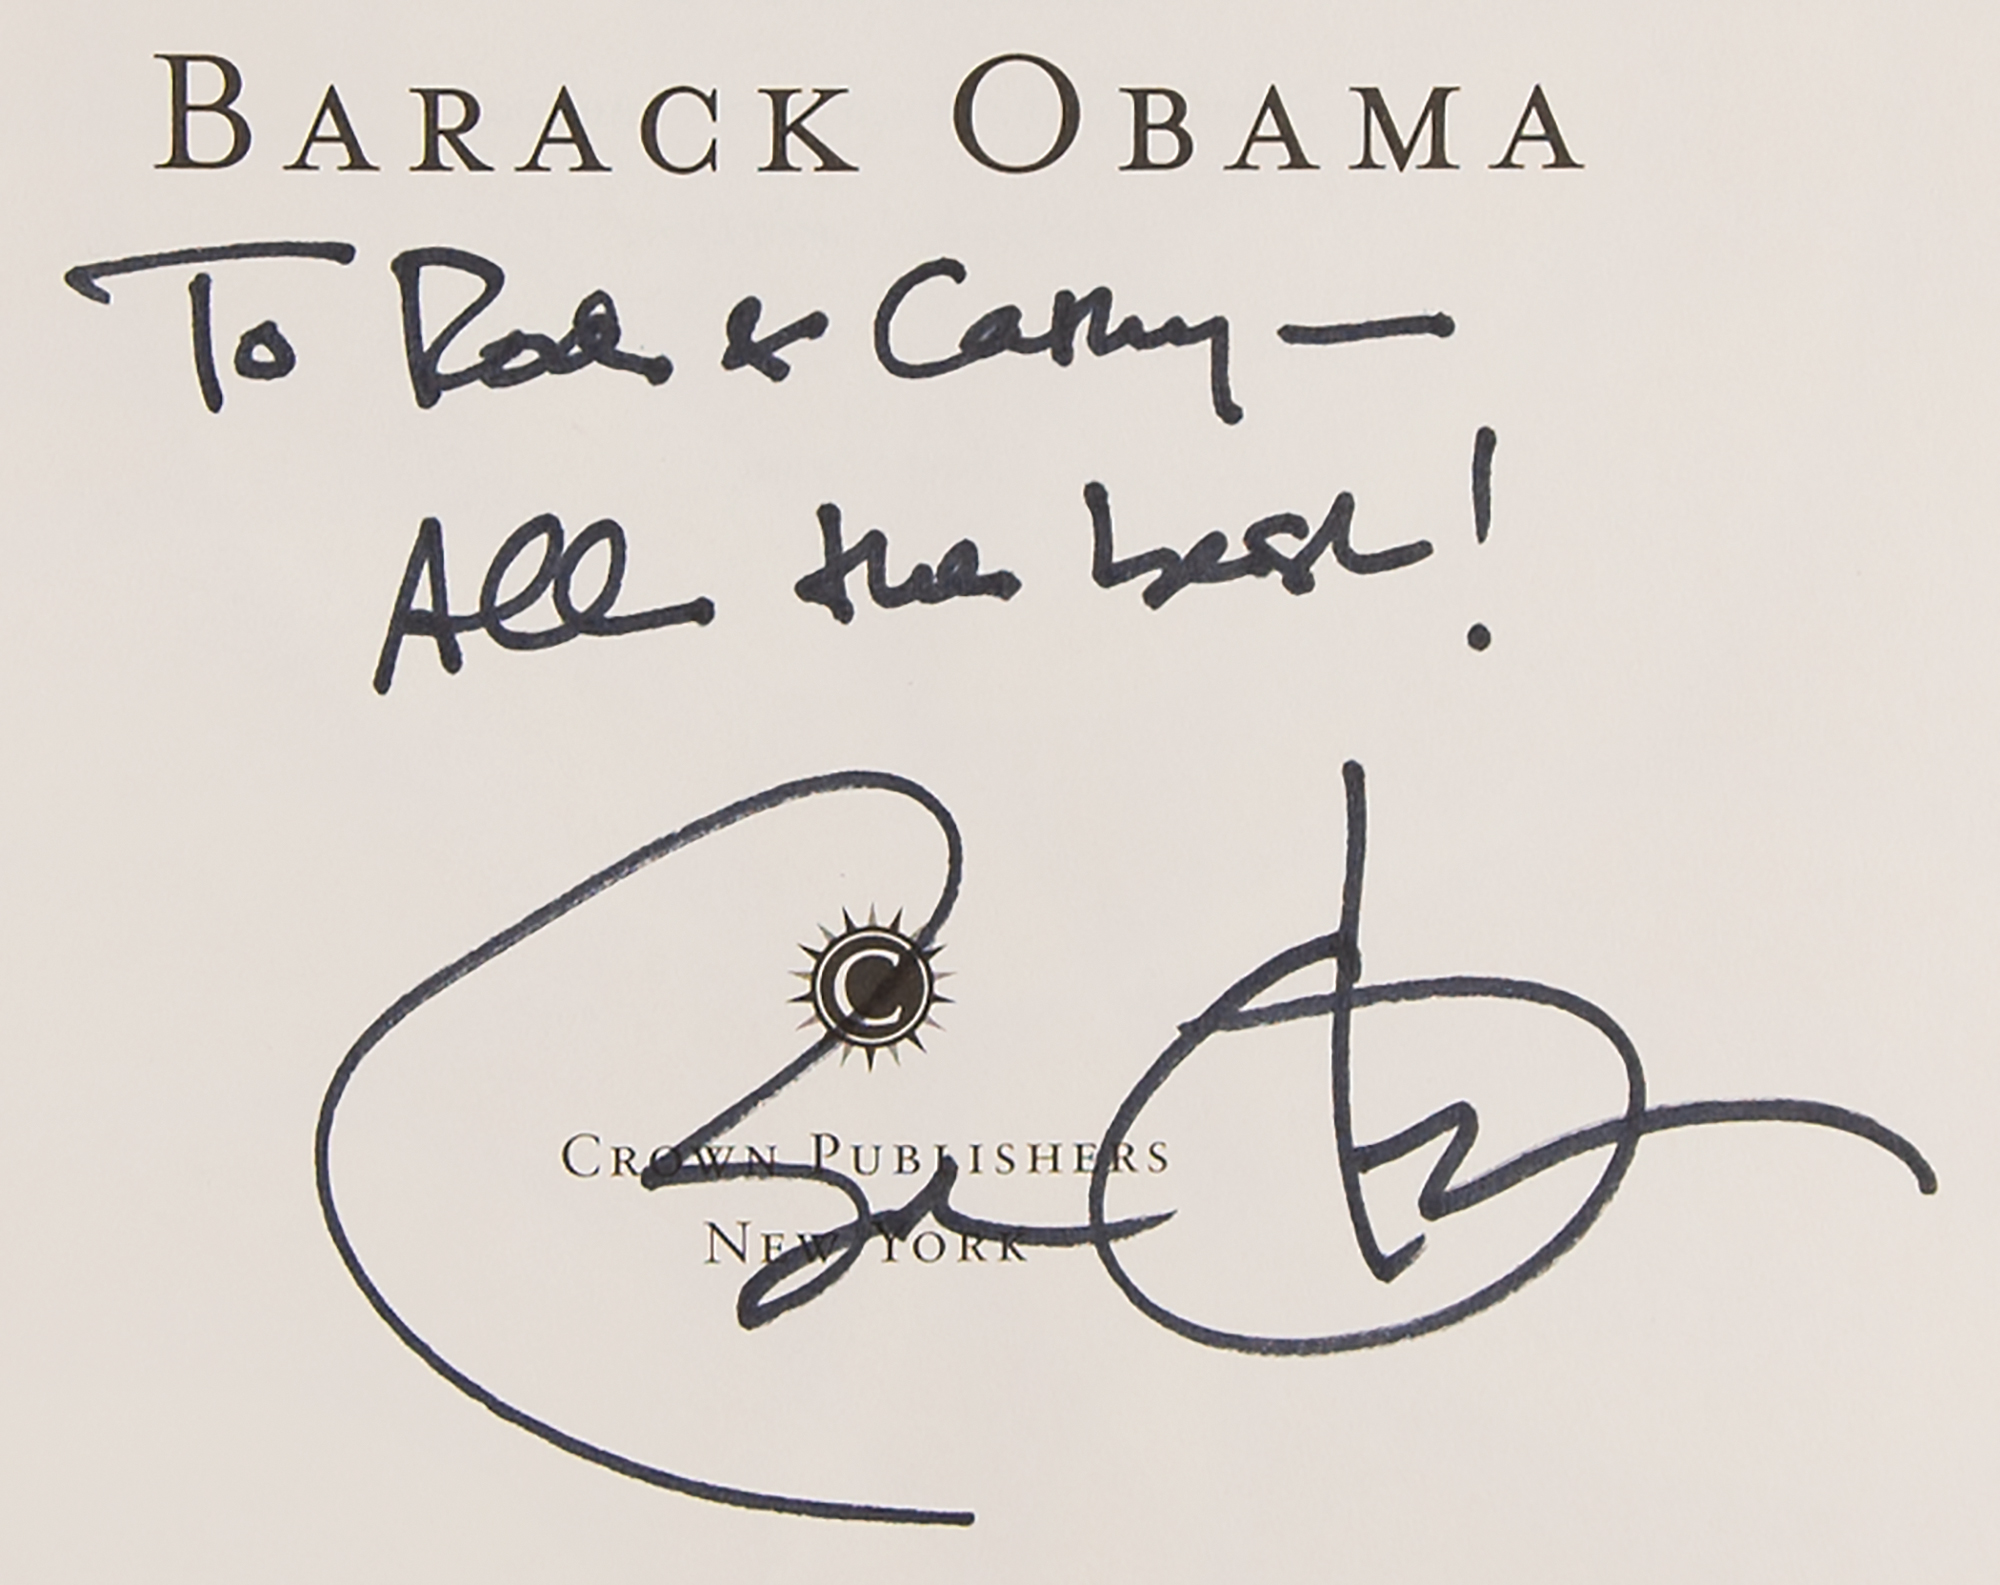 BARACK OBAMA
To Rod & Cathy —
All the best!
C
CROWN PUBLISHERS
NEW YORK